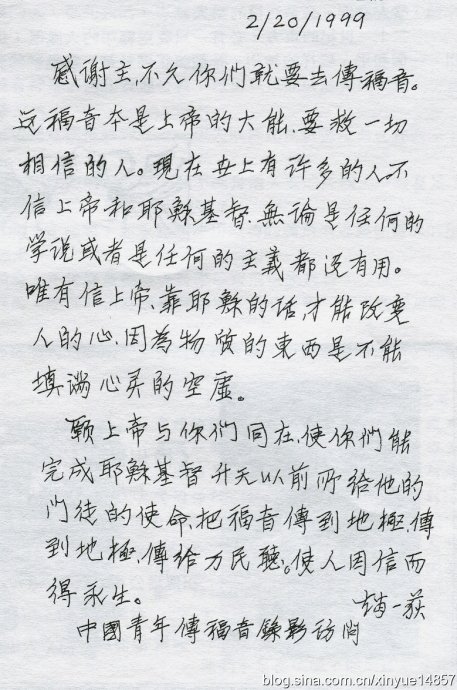 2/20/1999
感谢主,不久你們就要去傳福音。
这福音本是上帝的大能,要救一切
相信的人。現在世上有许多的人,不
信上帝和耶穌基督,無論是任何的
学说或者是任何的主義都没有用。
唯有信上帝,靠耶穌的话,才能改变
人的心,因為物质的東西是不能
填满心灵的空虚。
願上帝与你們同在,使你們能
完成耶穌基督升天以前所给他的
门徒的使命,把福音傳到地極,傳
到地極,傳给万民聽。使人因信而
得永生。
趙一荻
中國青年傳福音錄影訪问
blog.sina.com.cn/xinyue14857